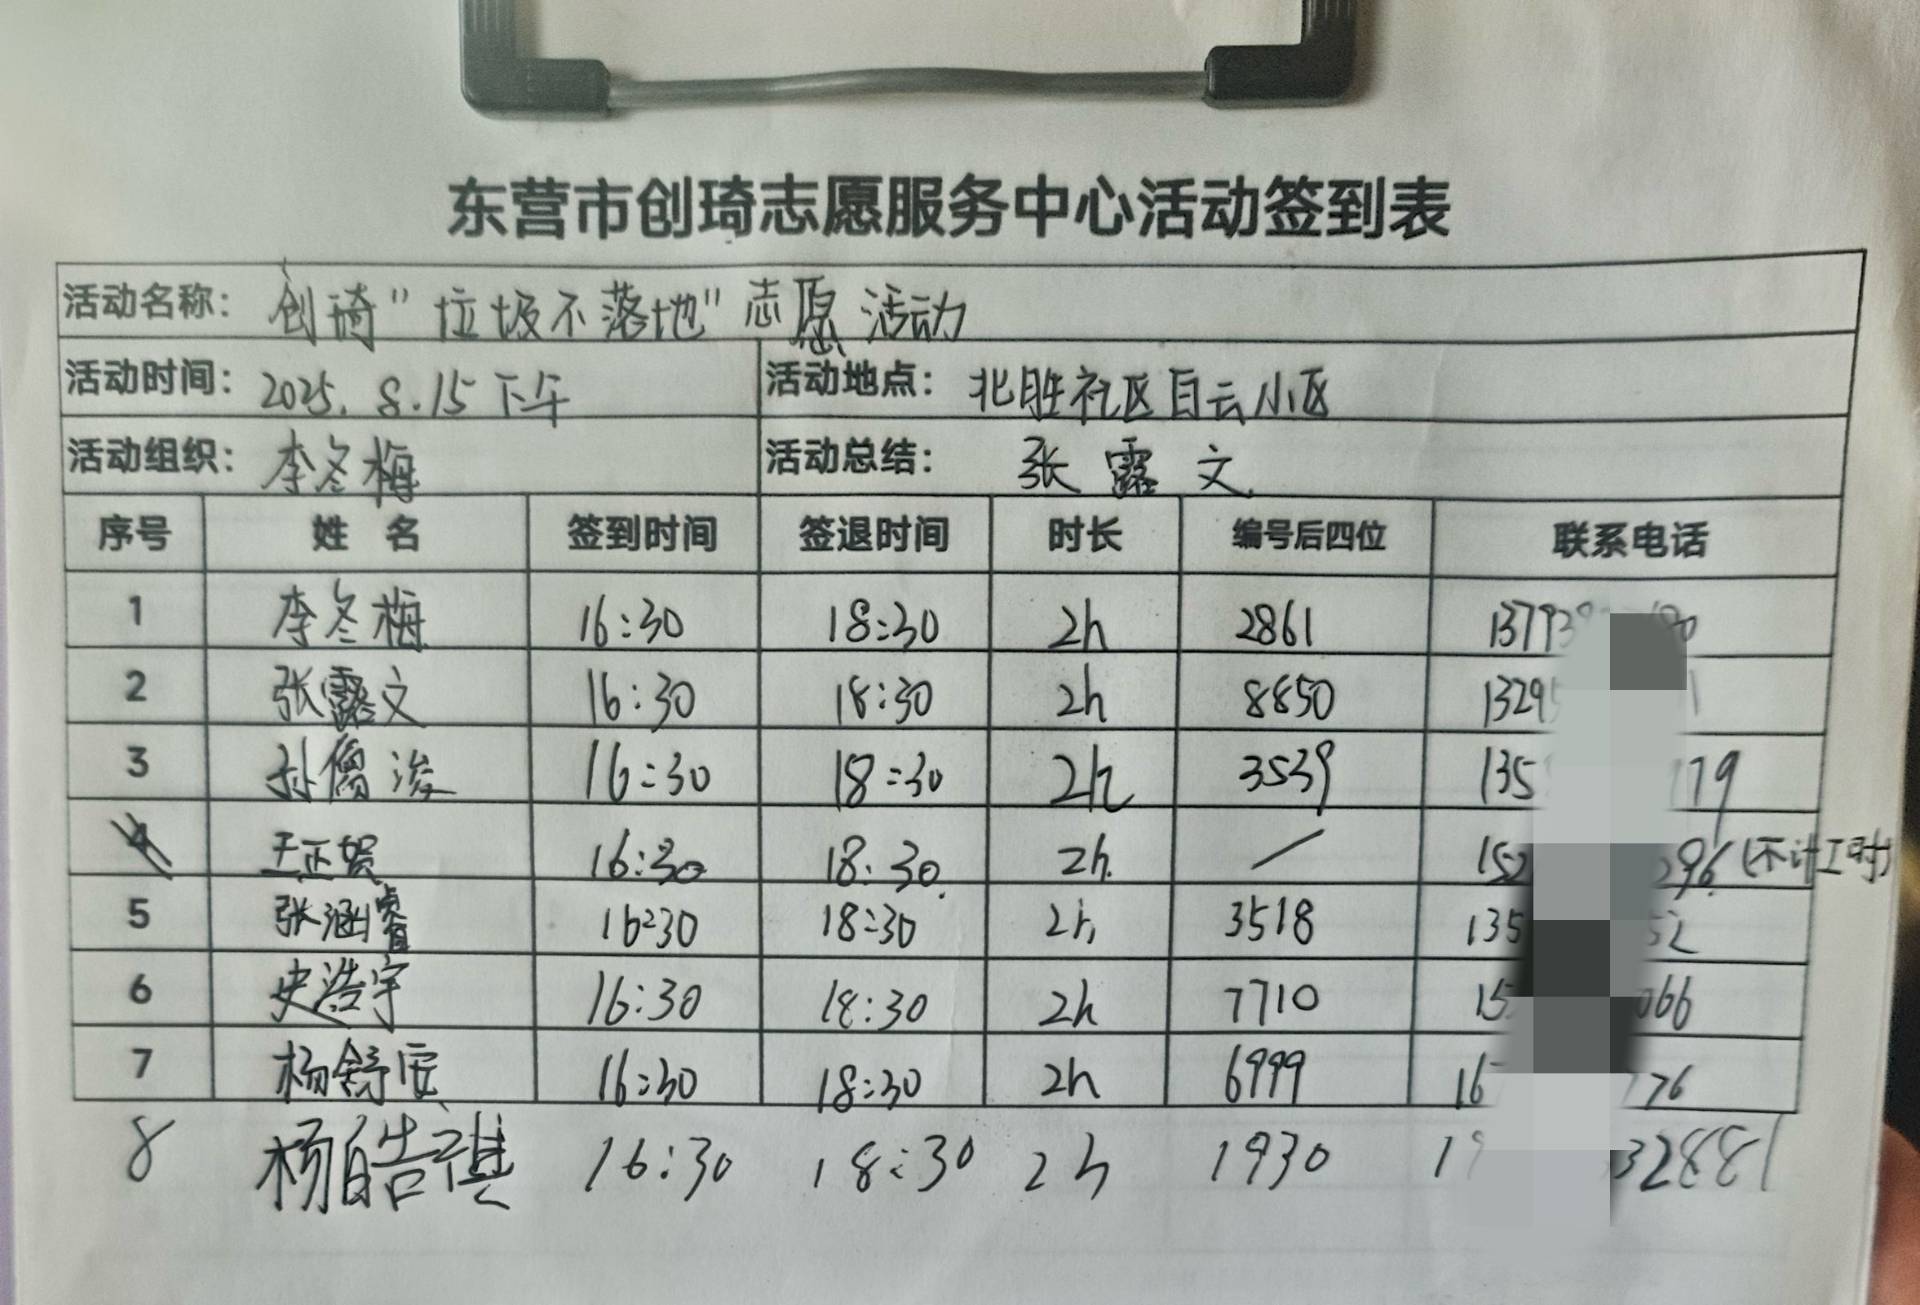 东营市创琦志愿服务中心活动签到表
活动名称: 创琦"垃圾不落地"志愿活动
活动时间: 2025.8.15下午 活动地点: 北胜社区白云小区
活动组织: 李冬梅 活动总结: 张露文
序号 姓名 签到时间 签退时间 时长 编号后四位 联系电话
1 李冬梅 16:30 18:30 2h 2861 13793
2 张露文 16:30 18:30 2h 8850 1329
3 孙儒浚 16:30 18:30 2h 3539 135 19
4 王正贺 16:30 18:30 2h. / 152 296 (不计工时)
5 张涵睿 16:30 18:30 2h 3518 135 52
6 史浩宇 16:30 18:30 2h 7710 15 066
7 杨舒安 16:30 18:30 2h 6999 16 176
8 杨皓祺 16:30 18:30 2h 1930 1 32881